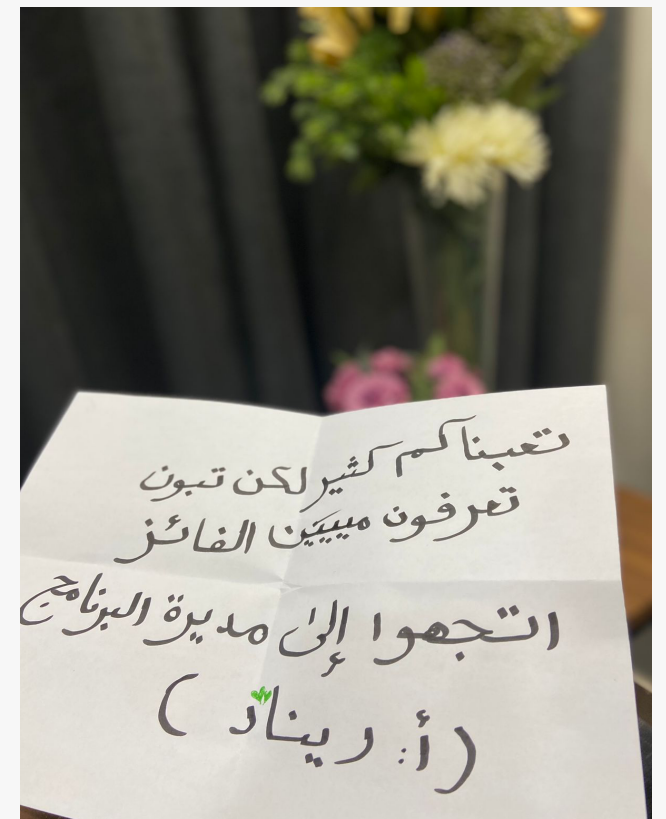 تعبناكم كثير لكن تبون
تعرفون مييييَن الفائز
اتجهوا إلىٰ مديرة البرنامج
(أ: ريناد)